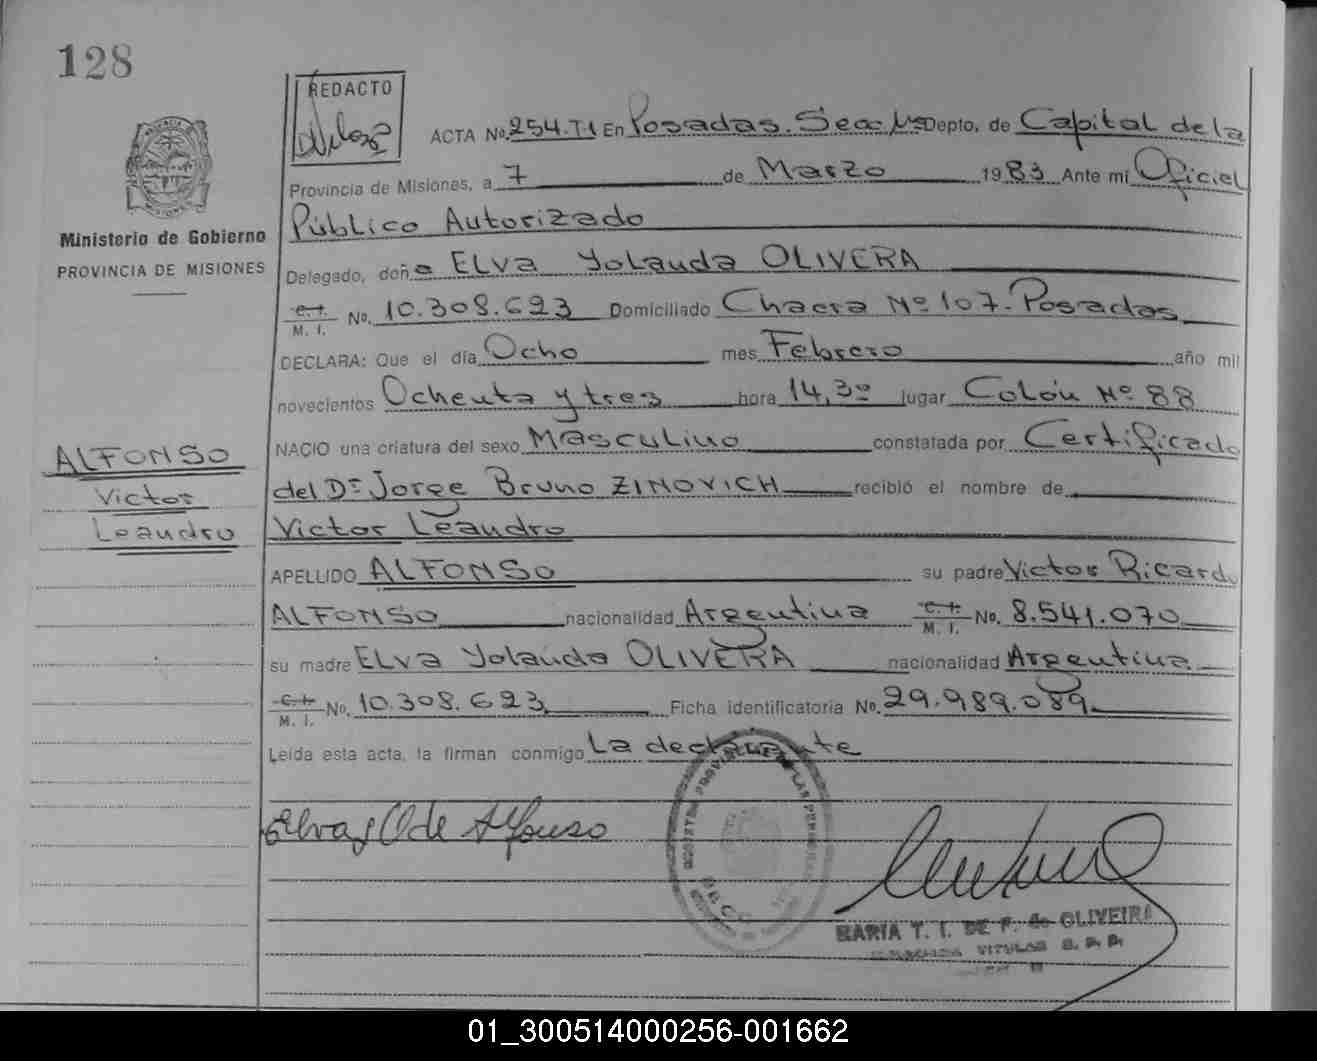 128
REDACTO
ACTA No. 254.T1 En Posadas. Secc. Depto. de Capital de la
Provincia de Misiones, a 7 de Marzo 1983 Ante mi Oficiel
Público Autorizado
Ministerio de Gobierno
PROVINCIA DE MISIONES
Delegado, doña ELVA Yolanda OLIVERA
C.I. M. I. No. 10.308.623 Domiciliado Chacra Nº 107. Posadas
DECLARA: Que el día Ocho mes Febrero año mil
novecientos Ochenta y tres hora 14,30 lugar Colón Nº 88
NACIO una criatura del sexo Masculino constatada por Certificado
del Dr Jorge Bruno ZINOVICH recibió el nombre de
Victor Leandro
ALFONSO
Victor
Leandro
APELLIDO ALFONSO su padre Victor Ricardo
ALFONSO nacionalidad Argentina C.I. M. I. No. 8.541.070
su madre ELVA Yolanda OLIVERA nacionalidad Argentina
C.I. M. I. No. 10.308.623 Ficha identificatoria No. 29.989.089
Leída esta acta, la firman conmigo La declarante
Elva O de Alfonso
MARIA T. I. DE F. de OLIVEIRA
01_300514000256-001662